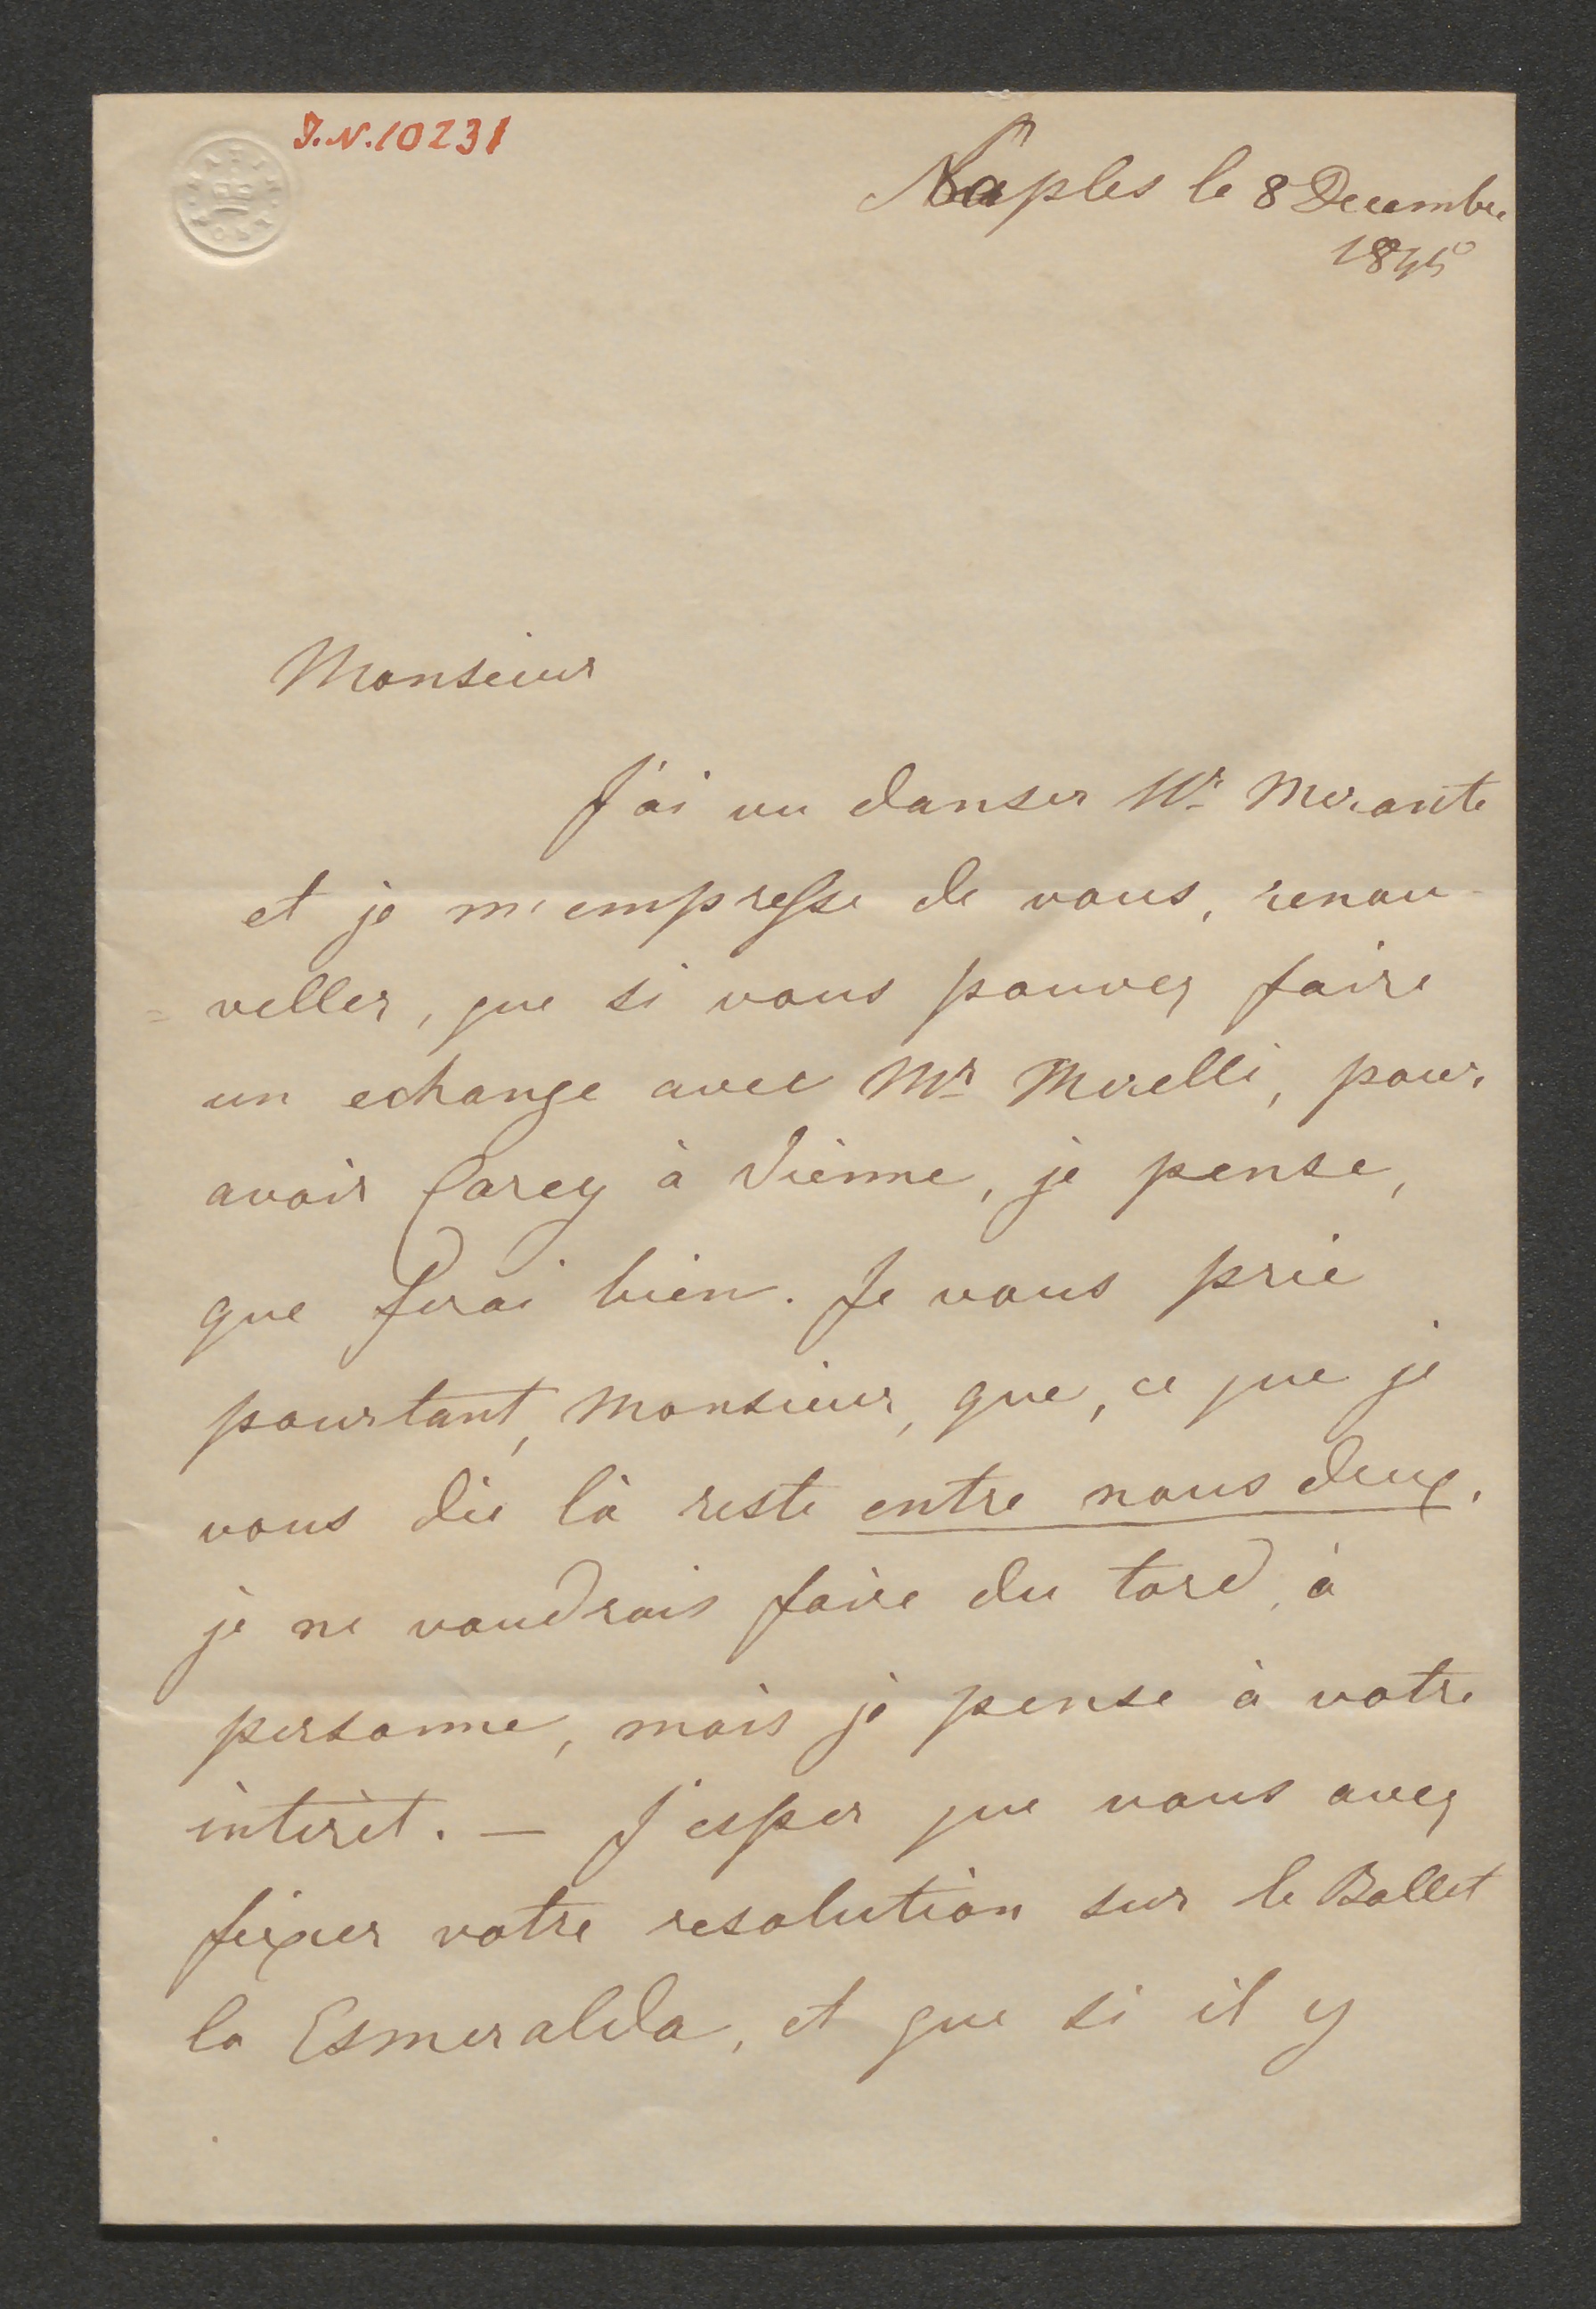 I.N.10231
Naples le 8 Decembre
1845
Monsieur
J'ai vu danser Mr Merante
et je m'empresse de vous, renou-
=veller, que si vous pouvez faire
un echange avec Mr Merelli, pour
avoir Carey à Vienne, je pense,
que serai bien. Je vous prie
pourtant, Monsieur, que, ce que je
vous die là reste entre nous deux.
je ne voudrais faire du tord, à
personne, mais je pense à votre
intirèt. — J'esper que vous avez
fixer votre resolution sur le Ballet
la Esmeralda, et que si il y